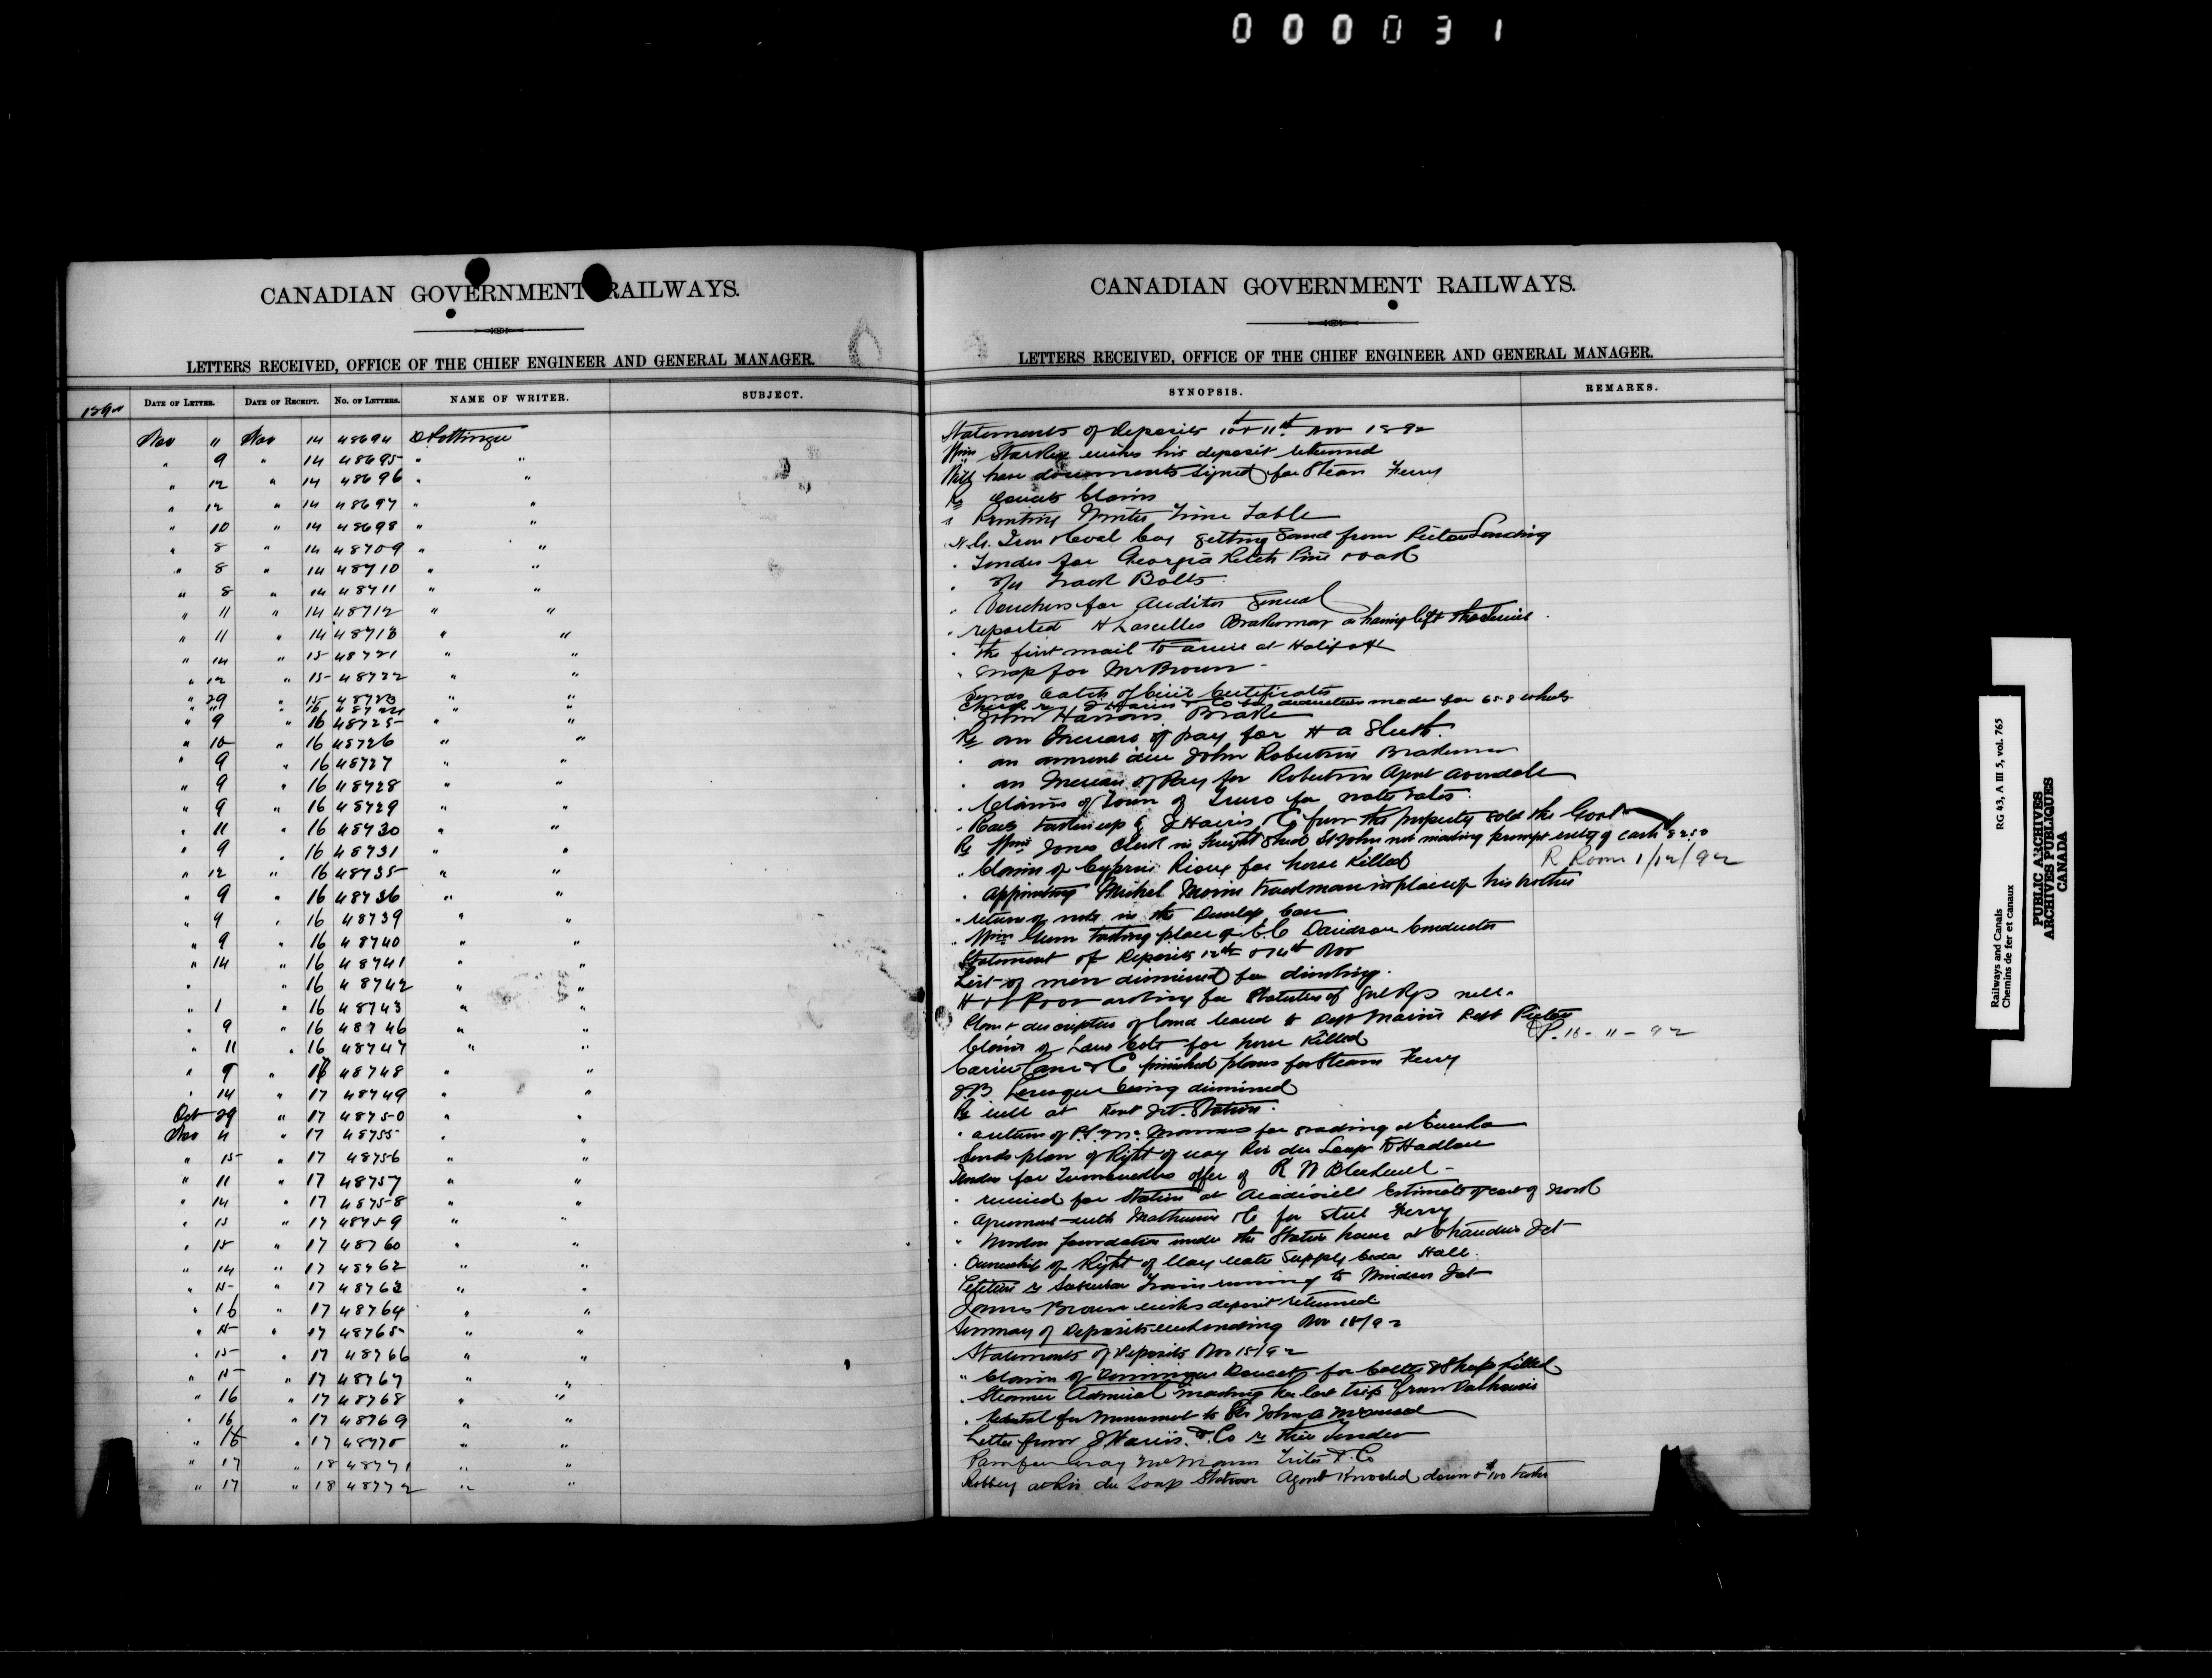 000031
CANADIAN GOVERNMENT RAILWAYS.
LETTERS RECEIVED, OFFICE OF THE CHIEF ENGINEER AND GENERAL MANAGER.
DATE OF LETTER. DATE OF RECEIPT. NO. OF LETTERS. NAME OF WRITER. SUBJECT.
Nov 11 Nov 14 48694 D Pottinger
" 9 " 14 48695 " "
" 12 " 14 48696 " "
" 12 " 14 48697 " "
" 10 " 14 48698 " "
" 8 " 14 48709 " "
" 8 " 14 48710 " "
" 8 " 14 48711 " "
" 11 " 14 48712 " "
" 11 " 14 48713 " "
" 14 " 15 48721 " "
" 12 " 15 48722 " "
" 29 " 15 48723 " "
" 9 " 16 48725 " "
" 10 " 16 48726 " "
" 9 " 16 48727 " "
" 9 " 16 48728 " "
" 9 " 16 48729 " "
" 11 " 16 48730 " "
" 9 " 16 48731 " "
" 12 " 16 48735 " "
" 9 " 16 48736 " "
" 9 " 16 48739 " "
" 9 " 16 48740 " "
" 14 " 16 48741 " "
" " 16 48742 " "
" 1 " 16 48743 " "
" 9 " 16 48746 " "
" 11 " 16 48747 " "
" 9 " 16 48748 " "
" 14 " 17 48749 " "
Oct 29 " 17 48750 " "
Nov 11 " 17 48755 " "
" 15 " 17 48756 " "
" 11 " 17 48757 " "
" 14 " 17 48758 " "
" 15 " 17 48759 " "
" 15 " 17 48760 " "
" 14 " 17 48762 " "
" 15 " 17 48763 " "
" 16 " 17 48764 " "
" 15 " 17 48765 " "
" 15 " 17 48766 " "
" 15 " 17 48767 " "
" 16 " 17 48768 " "
" 16 " 17 48769 " "
" 16 " 17 48770 " "
" 17 " 18 48771 " "
" 17 " 18 48772 " "
CANADIAN GOVERNMENT RAILWAYS.
LETTERS RECEIVED, OFFICE OF THE CHIEF ENGINEER AND GENERAL MANAGER.
SYNOPSIS. REMARKS.
Statements of Deposits 10 & 11th Nov 1892
Wm Starkey wishes his deposit returned
Will have documents signed for Steam Ferry
Re Claims
" Printing Winter Time Table
N.S. Iron & Coal Coy getting Sand from Pictou Landing
" Tender for Georgia Pitch Pine & oak
" Track Bolts
" Vouchers for Auditor General
" reported H Lascelles Brakeman as having left the Service
" the first mail to arrive at Halifax
" map for Mr Brown
Sends batch of Civil Certificates
deduction made for 658 wheels
" John Brake
Re an Increase of pay for H A Sleeth
" an amount due John Robertson Brakeman
" an Increase of Pay for Robertson Agent Avondale
" Claims of Town of Truro for water rates
" Rails taken up by J Harris & Co from the property sold the Govt
Re Wm Jones Clerk in Freight Shed St John not making prompt entry of cash $82.50
" Claim of Cyprien Rioux for horse Killed R Room 1/12/92
" Appointing Michel Morin trackman in place of his brother
" return of note in the Dunlop Case
" Wm taking place of C.C Davidson Conductor
Statement of Deposits 12th & 14th Nov
List of men dismissed for drinking.
for Statutes of
Plan & description of land leased to Dept Marine Pictou
Claim of for horse Killed P. 16-11-92
Carrier Laine & Co finished plans for Steam Ferry
J.B Levesque being dismissed
Re well at Kent Jct. Station
" for grading at Eureka
Sends plan of Right of way Riv du Loup to Hadlow
Tender for offer of R W Blackwell
" received for Station at Acadieville Estimate of cost of work
" Agreement with & Co for Steel Ferry
" Wooden foundation under the Station house at Chaudiere Jct
" Ownership of Right of Way water Supply Cedar Hall
Petition re Suburban Train running to Windsor Jct
James Brown wishes deposit returned
Summary of Deposits ending Nov 15/92
Statements of Deposits Nov 15/92
" Claim of Doucet for Cattle & Sheep Killed
" Steamer Admiral making her last trip from Dalhousie
" Pedestal for Monument to Sir John A McDonald
Letter from J Harris & Co re their Tender
Robbery at Riv du Loup Station Agent Knocked down & $100 taken
Railways and Canals RG 43, A III 5, vol. 765
Chemins de fer et canaux
PUBLIC ARCHIVES
ARCHIVES PUBLIQUES
CANADA